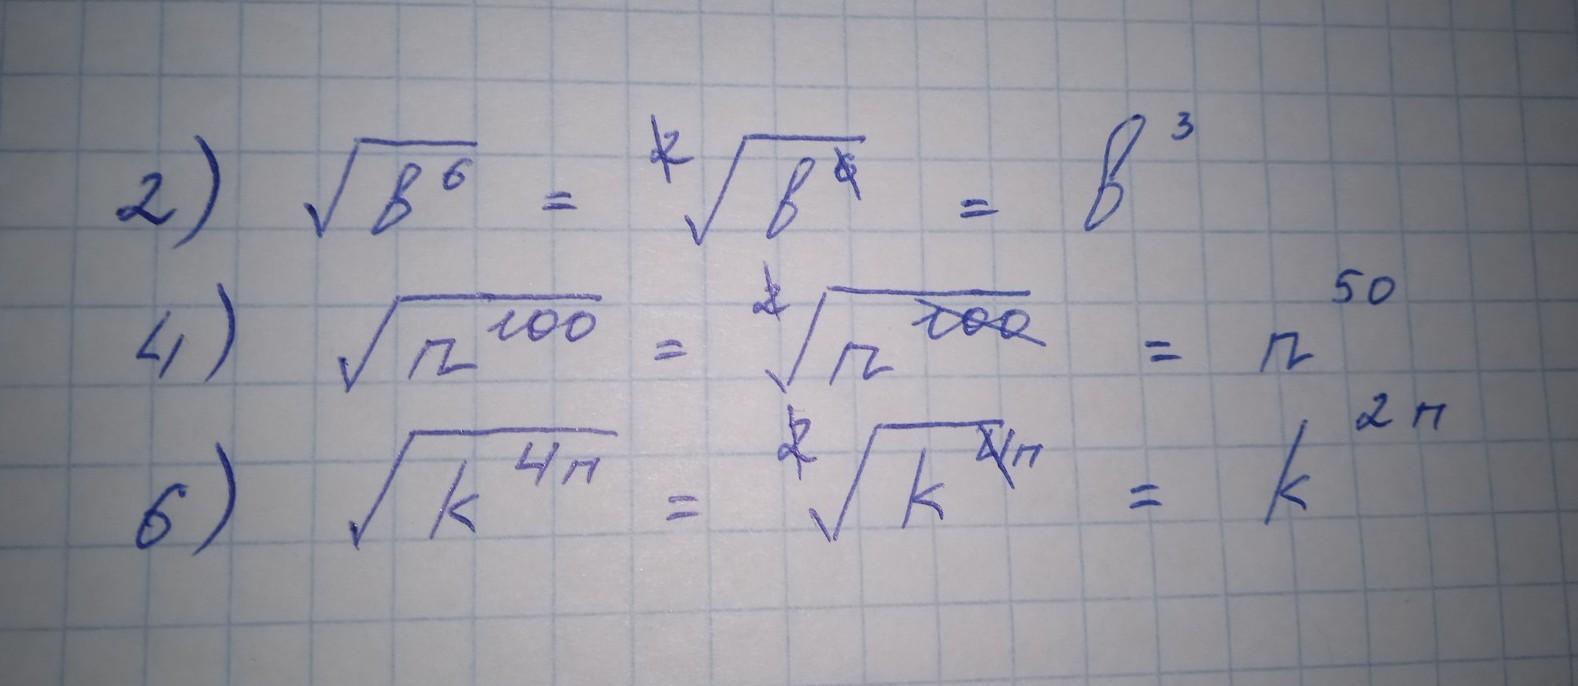 2) √в⁶ = ²√b⁶ = b³
4) √n¹⁰⁰ = ²√n¹⁰⁰ = n⁵⁰
6) √k⁴ⁿ = ²√k⁴ⁿ = k²ⁿ